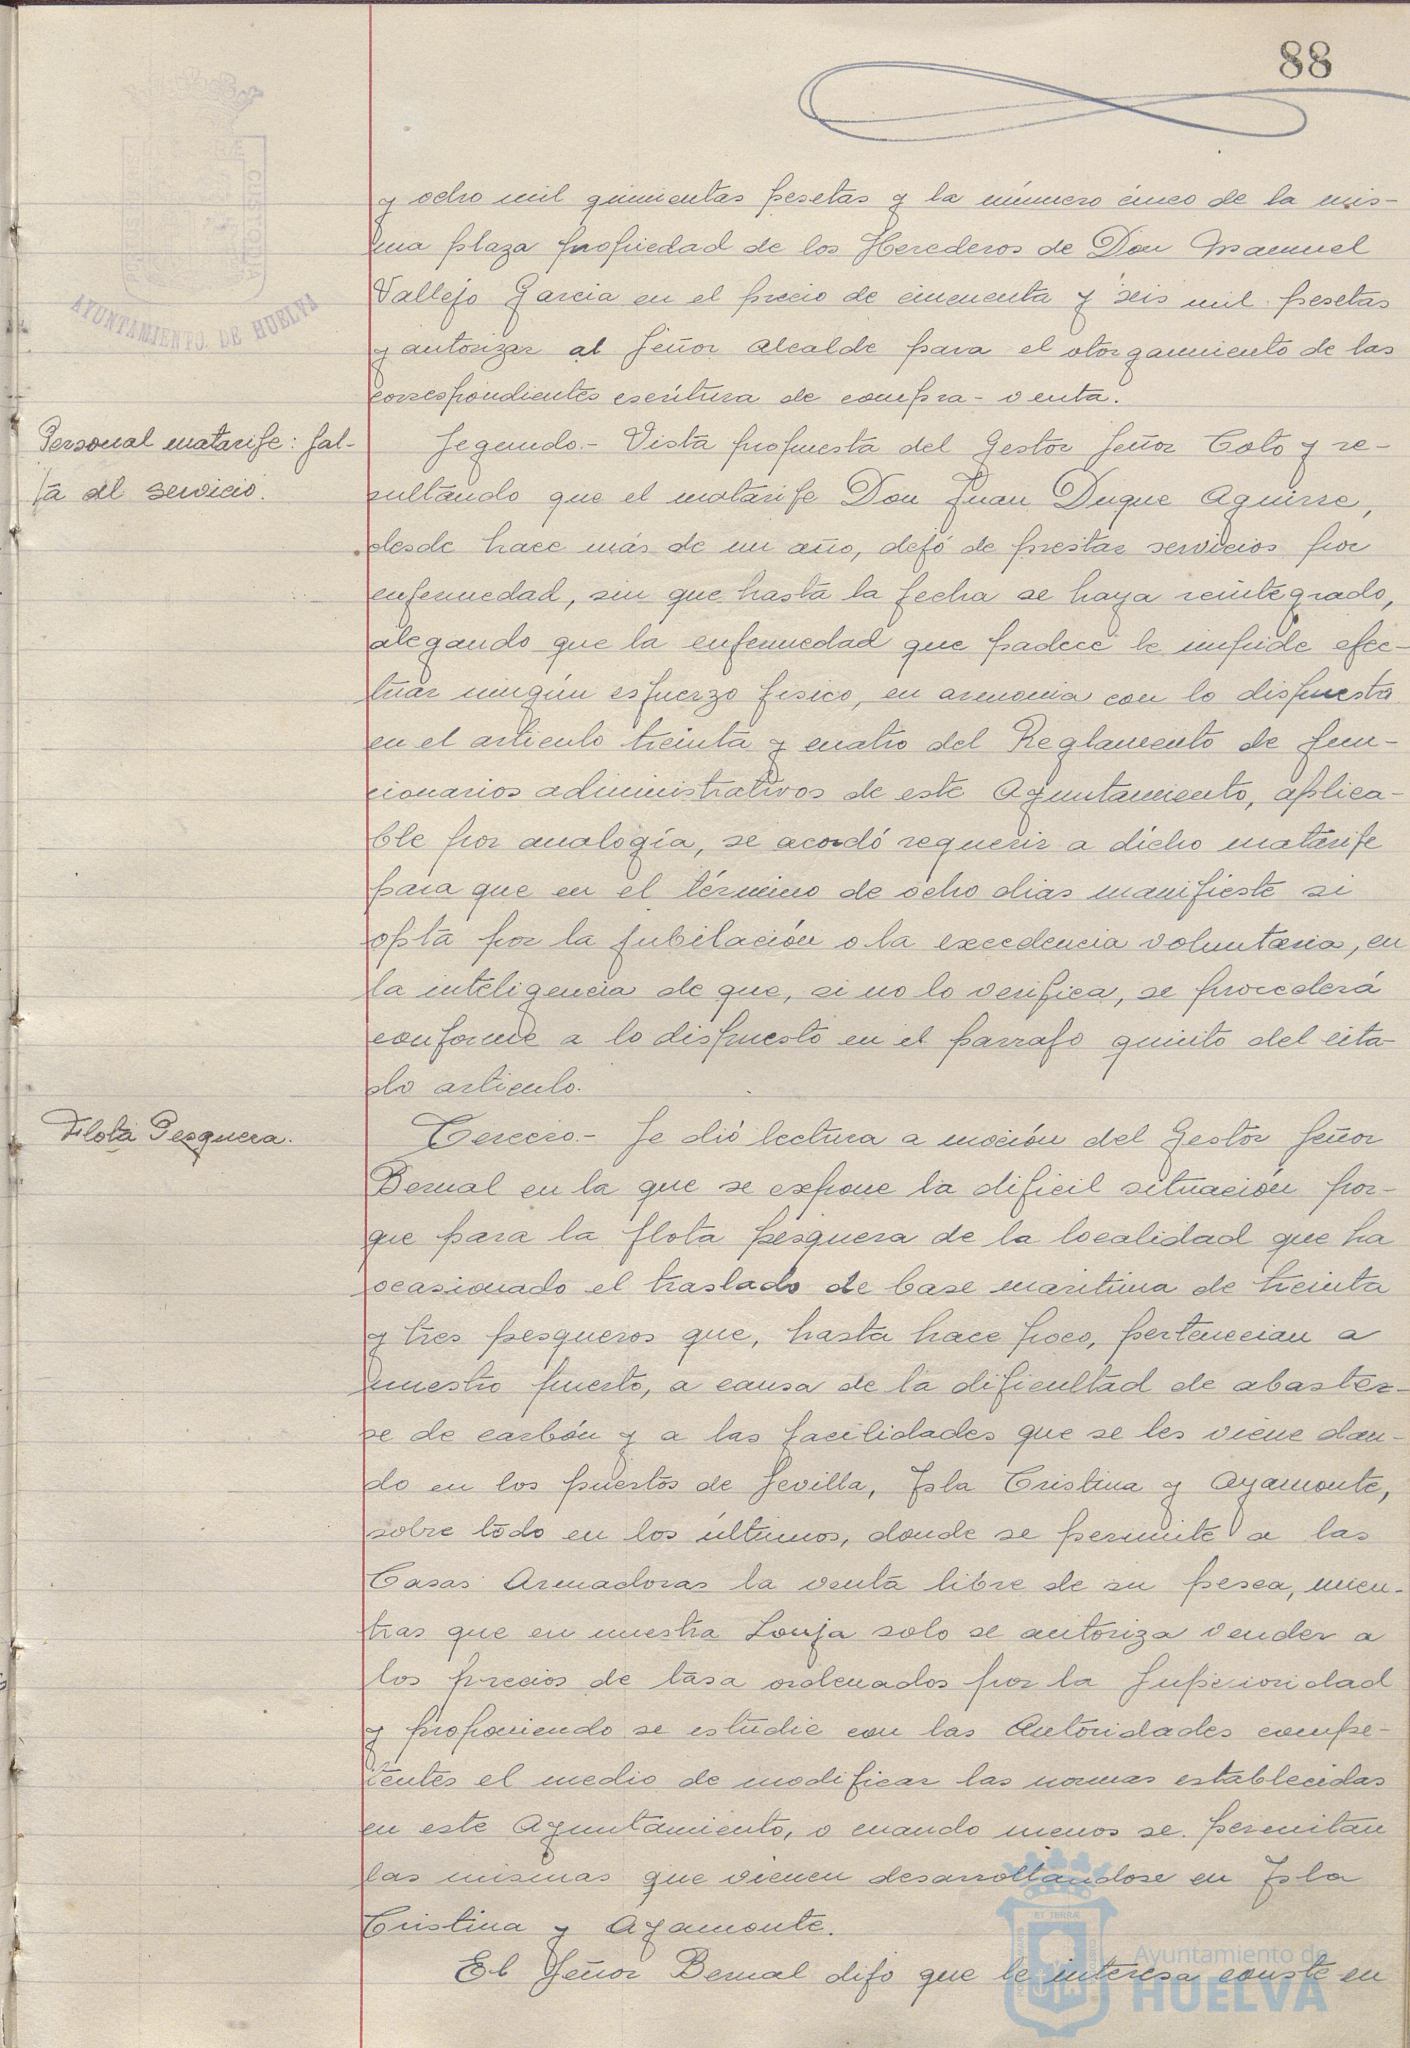 88
AYUNTAMIENTO DE HUELVA
y ocho mil quinientas pesetas y la número cinco de la mis-
ma plaza propiedad de los Herederos de Don Manuel
Vallejo Garcia en el precio de cincuenta y seis mil pesetas
y autorizar al Señor Alcalde para el otorgamiento de las
correspondientes escritura de compra-venta.
Personal matarife: fal-
ta al servicio.
Segundo.- Vista propuesta del Gestor Señor Coto y re-
sultando que el matarife Don Juan Duque Aguirre,
desde hace más de un año, dejó de prestar servicios por
enfermedad, sin que hasta la fecha se haya reintegrado,
alegando que la enfermedad que padece le impide efec-
tuar ningún esfuerzo fisico, en armonia con lo dispuesto
en el articulo treinta y cuatro del Reglamento de fun-
cionarios administrativos de este Ayuntamiento, aplica-
ble por analogía, se acordó requerir a dicho matarife
para que en el término de ocho dias manifieste si
opta por la jubilación o la excedencia voluntaria, en
la inteligencia de que, si no lo verifica, se procederá
conforme a lo dispuesto en el parrafo quinto del cita-
do articulo.
Flota Pesquera.
Tercero.- Se dió lectura a moción del Gestor Señor
Bernal en la que se expone la dificil situación por-
que para la flota pesquera de la localidad que ha
ocasionado el traslado de base maritima de treinta
y tres pesqueros que, hasta hace poco, pertenecian a
nuestro puerto, a causa de la dificultad de abaster-
se de carbón y a las facilidades que se les viene dan-
do en los puertos de Sevilla, Isla Cristina y Ayamonte,
sobre todo en los últimos, donde se permite a las
Casas Armadoras la venta libre de su pesca, mien-
tras que en nuestra Lonja solo se autoriza vender a
los precios de tasa ordenados por la Superioridad
y proponiendo se estudie con las Autoridades compe-
tentes el medio de modificar las normas establecidas
en este Ayuntamiento, o cuando menos se permitan
las mismas que vienen desarrollandose en Isla
Cristina y Ayamonte.
El Señor Bernal dijo que le interesa conste en
Ayuntamiento de
HUELVA